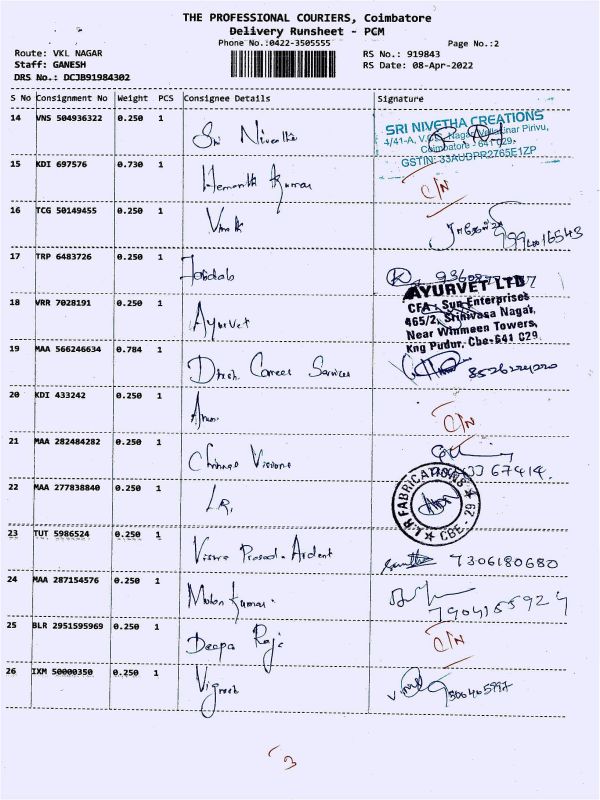 THE PROFESSIONAL COURIERS, Coimbatore
Delivery Runsheet - PCM
Phone No.:0422-3505555 Page No.:2
Route: VKL NAGAR RS No.: 919843
Staff: GANESH RS Date: 08-Apr-2022
DRS No.: DCJB91984302
S No Consignment No Weight PCS Consignee Details Signature
14 VNS 504936322 0.250 1 Sri Nivetha
SRI NIVETHA CREATIONS
Coimbatore - 641 029.
GSTIN: 33AUDPR2765E1ZP
15 KDI 697576 0.730 1 Hemanth Kumar C/N
16 TCG 50149455 0.250 1 Vinoth
17 TRP 6483726 0.250 1
18 VRR 7028191 0.250 1 Ayurvet
AYURVET LTD
CFA: Sun Enterprises
465/2, Srinivasa Nagar,
Near Winmeen Towers,
Kng Pudur, Cbe-641 029
19 MAA 566246634 0.784 1 Career Services
20 KDI 433242 0.250 1 Arun C/N
21 MAA 282484282 0.250 1
22 MAA 277838840 0.250 1 L.R,
L.R FABRICATIONS ★ CBE - 29 ★
23 TUT 5986524 0.250 1 Prasad Ardent 7306180680
24 MAA 287154576 0.250 1 Mohan Kumar.
25 BLR 2951595969 0.250 1 Deepa Raj C/N
26 IXM 50000350 0.250 1 Vignesh
3